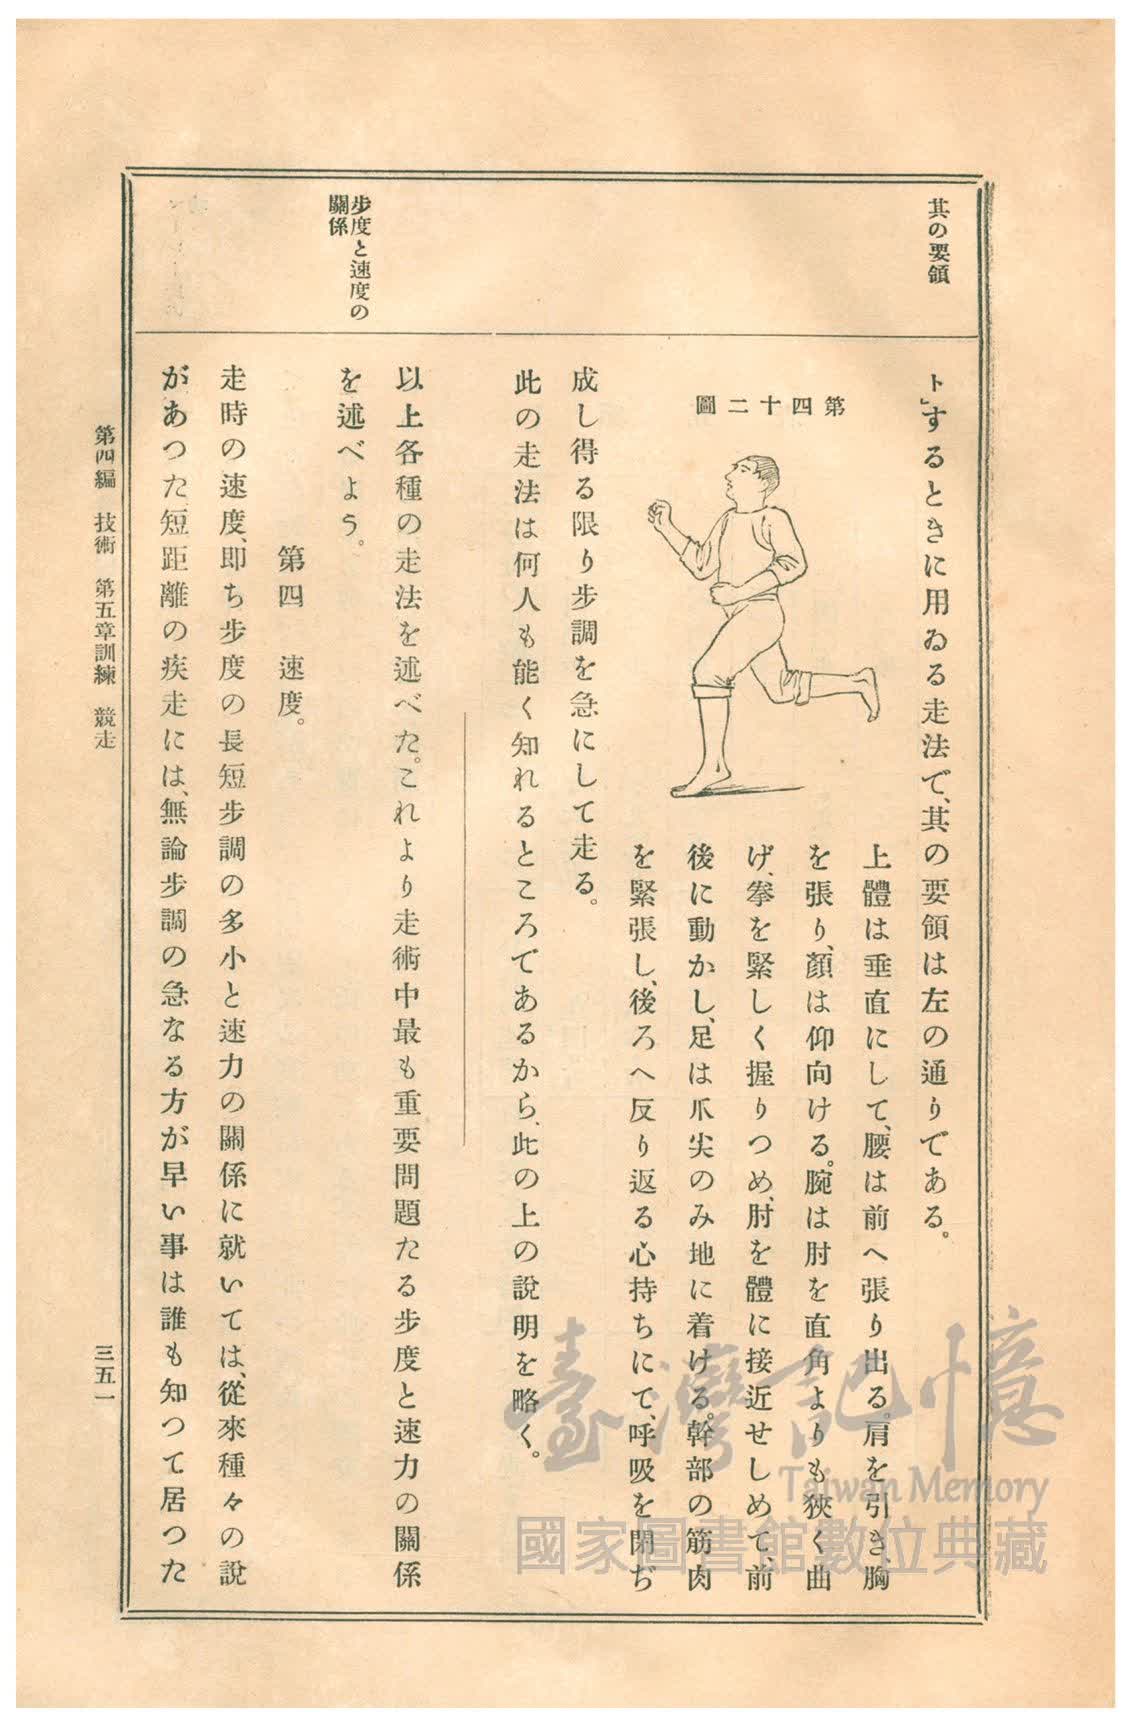 其の要領
步度と速度の
關係
ト」するときに用ゐる走法で、其の要領は左の通りである。
第四十二圖
上體は垂直にして、腰は前へ張り出る。肩を引き、胸
を張り、顏は仰向ける。腕は肘を直角よりも狹く曲
げ、拳を緊しく握りつめ、肘を體に接近せしめて、前
後に動かし、足は爪尖のみ地に着ける。幹部の筋肉
を緊張し、後ろへ反り返る心持ちにて、呼吸を閉ぢ
成し得る限り步調を急にして走る。
此の走法は何人も能く知れるところであるから、此の上の說明を略く。
以上各種の走法を述べた。これより走術中最も重要問題たる步度と速力の關係
を述べよう。
第四　速度。
走時の速度、卽ち步度の長短步調の多小と速力の關係に就いては、從來種々の說
があつた、短距離の疾走には、無論步調の急なる方が早い事は誰も知つて居つた
第四編　技術　第五章訓練　競走
三五一
臺灣記憶
Taiwan Memory
國家圖書館數位典藏